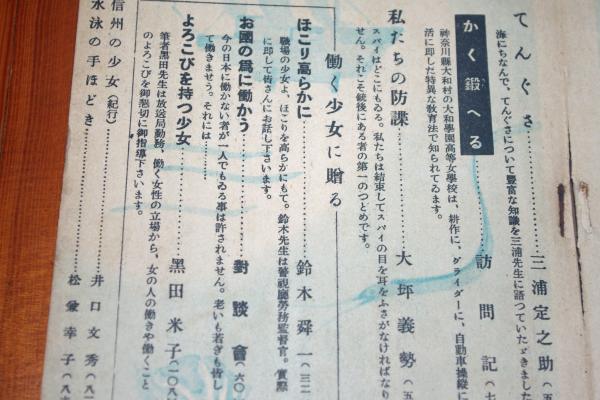 てんぐさ…………三浦定之助(五
海にちなんで、てんぐさについて豐富な知識を三浦先生に語つていたゞきました
かく鍛へる…………訪問記(七
神奈川縣大和村の大和學園高等女學校は、耕作に、グライダーに、自動車操縱に
活に即した特異な教育法で知られてゐます。
私たちの防諜…………大坪義勢(五
スパイはどこにもゐる。私たちは結束してスパイの目を耳をふさがなければなり
せん。それこそ銃後にある者の第一のつとめです。
働く少女に贈る
ほこり高らかに…………鈴木舜一(三二
職場の少女よ、ほこりを高らかにもて。鈴木先生は警視廳勞務監督官。實際
に即して皆さんにお話し下さいます。
お國の爲に働かう…………對談會(六〇
今の日本に働かない者が一人でもゐる事は許されません。老いも若きも皆し
て働きませう。それには…………
よろこびを持つ少女…………黑田米子(一〇八
筆者黑田先生は放送局勤務、働く女性の立場から、女の人の働きや働くこと
のよろこびを御懇切に御指導下さいます。
信州の少女(紀行)…………井口文秀(八二
水泳の手ほどき…………松兼幸子(八六